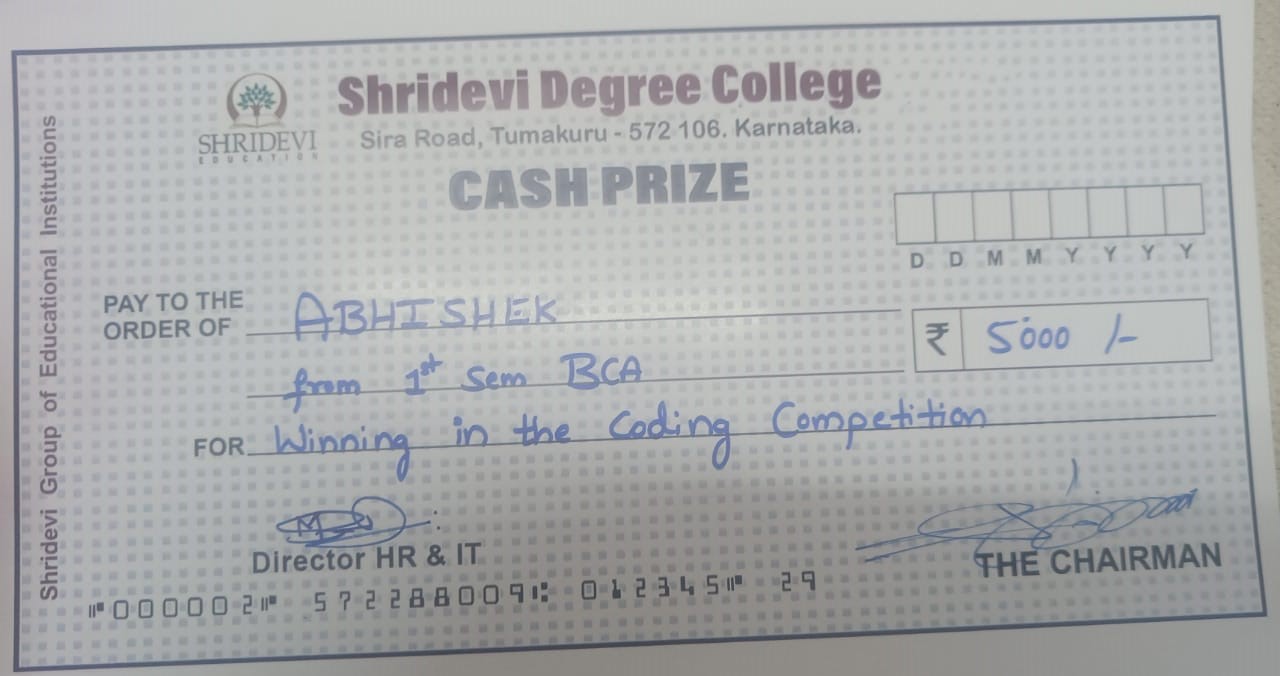 Shridevi Group of Educational Institutions
SHRIDEVI
EDUCATION
Shridevi Degree College
Sira Road, Tumakuru - 572 106. Karnataka.
CASH PRIZE
D D M M Y Y Y Y
PAY TO THE
ORDER OF ABHISHEK
₹ 5000 /-
from 1st Sem BCA
FOR Winning in the Coding Competition
Director HR & IT
THE CHAIRMAN
⑈000002⑈ 572288009⑆ 012345⑈ 29